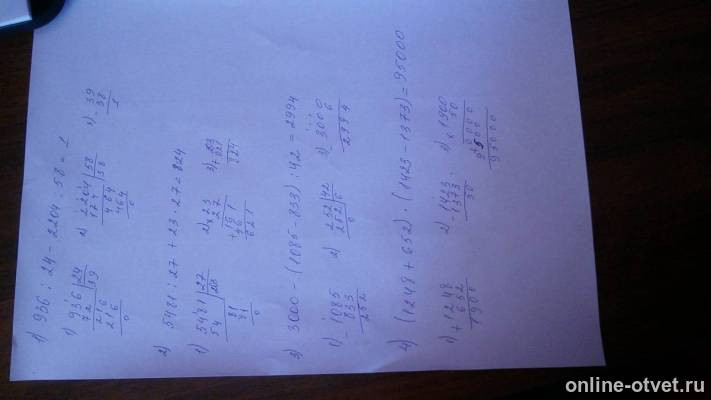 1) 936 : 24 - 2204 : 58 = 1
1) 936 | 24 2) 2204 | 58 3) 39
72 | 39 174 | 38 - 38
216 464 1
216 464
0 0
2) 5481 : 27 + 23 · 27 = 824
1) 5481 | 27 2) × 23 3) 203
54 | 203 27 + 621
81 + 161 824
81 46
0 621
3) 3000 - (1085 - 833) : 42 = 2994
1) - 1085 2) 252 | 42 3) - 3000
833 252 | 6 6
252 0 2994
4) (1248 + 652) · (1423 - 1373) = 95000
1) + 1248 2) - 1423 3) × 1900
652 1373 50
1900 50 0000
9500
95000
online-otvet.ru